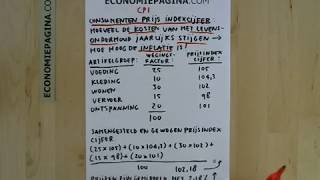 ECONOMIEPAGINA.COM
CPI
CONSUMENTEN PRIJS INDEXCIJFER:
HOEVEEL DE KOSTEN VAN HET LEVENS-
ONDERHOUD JAARLIJKS STIJGEN →
HOE HOOG DE INFLATIE IS!
ARTIKELGROEP: WEGINGS- PRIJSINDEX
FACTOR: CIJFER:
VOEDING 25 105
KLEDING 10 104,3
WONEN 30 102
VERVOER 15 98
ONTSPANNING 20 101
100
SAMENGESTELD EN GEWOGEN PRIJSINDEX
CIJFER
(25 x 105) + (10 x 104,3) + (30 x 102) +
(15 x 98) + (20 x 101)
100 = 102,18
PRIJZEN ZIJN GEMIDDELD MET 2,18%